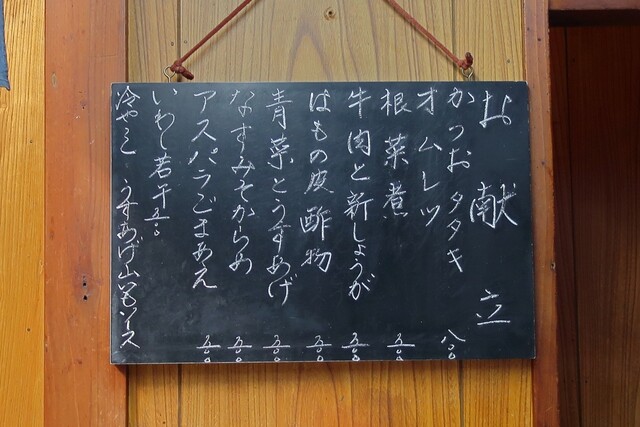 お献立
かつおタタキ 八〇〇
オムレツ
根菜煮 五〇〇
牛肉と新しょうが 五〇〇
はもの皮酢物 五〇〇
青菜とうすあげ 五〇〇
なすみそからめ 五〇〇
アスパラごまあえ 五〇〇
いわし若干 五〇〇
冷やっこ うすあげ山いもソース